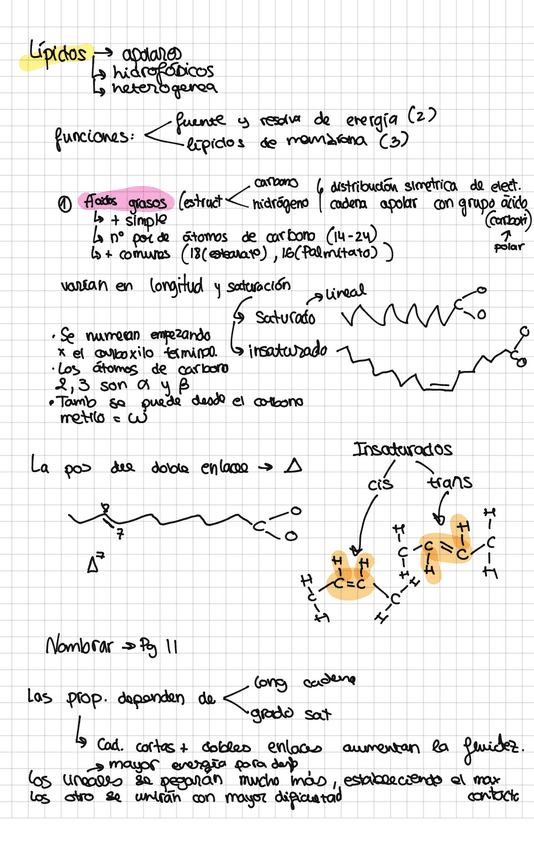 Lípidos → apolares
↳ hidrofóbicos
↳ heterogenea
funciones: fuente y reserva de energía (2)
lípidos de membrana (3)
① Ácidos grasos (estruct carbono hidrógeno distribución simetrica de elect.
cadena apolar con grupo ácido
(carboxi)
↑
polar
↳ + simple
↳ nº par de átomos de carbono (14-24)
↳ + comunes (18(estearato), 16(Palmitato))
varían en longitud y saturación
saturado → lineal
insaturado
C O O
C O O
· Se numeran empezando
x el carboxilo terminal.
· Los átomos de carbono
2, 3 son α y β
· Tamb se puede desde el carbono
metilo = ω
La pos del doble enlace → Δ
8
7
C O O
Δ⁷
Insaturados
cis trans
H H H H
C C = C C
H H H H
H H H H
C C = C C
H H H H
Nombrar → Pg 11
Las prop. dependen de long cadena
grado sat
↳ Cad. cortas + dobles enlaces aumentan la fluidez.
→ mayor energía para
Los lineales se pegarán mucho más, estableciendo el max
contacto
Los otro se unirán con mayor dificultad